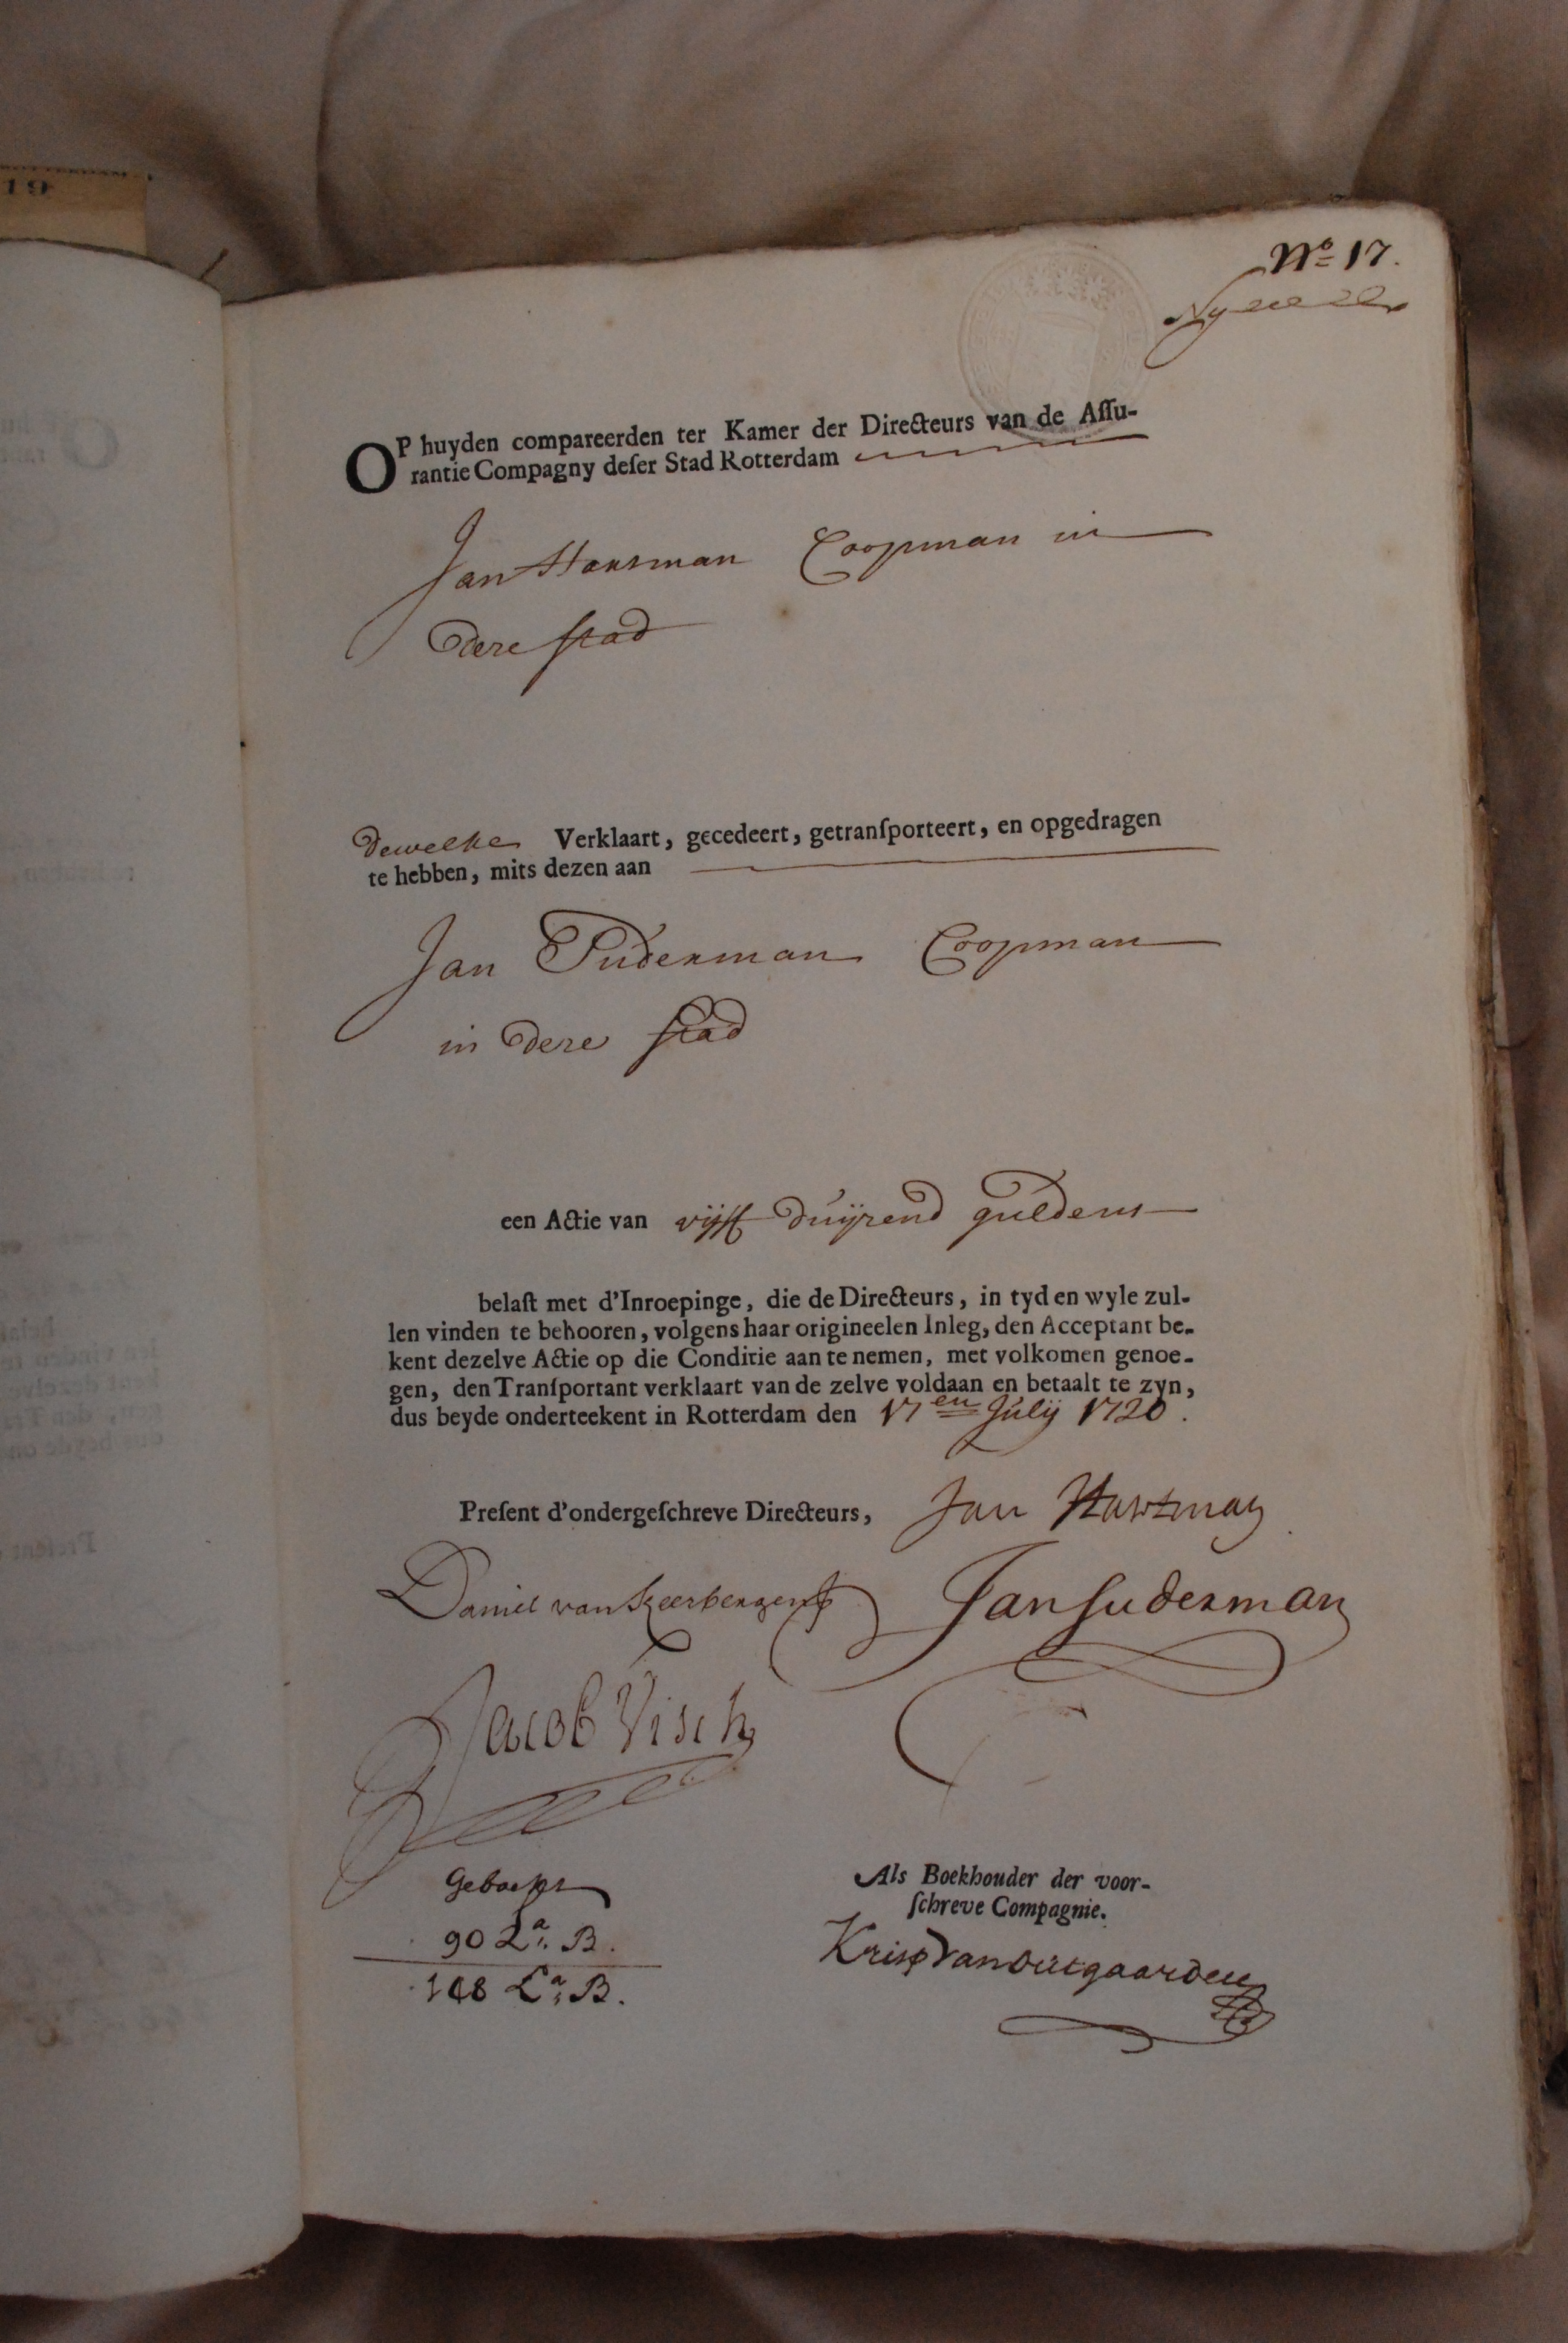 19
Nº 17.
OP huyden compareerden ter Kamer der Directeurs van de Aſſu-
rantie Compagny deſer Stad Rotterdam
Jan Hartman Coopman in
deze stad
dewelke Verklaart, gecedeert, getranſporteert, en opgedragen
te hebben, mits dezen aan
Jan Suderman Coopman
in deze stad
een Actie van vijff duijzend guldens
belaſt met d'Inroepinge, die de Directeurs, in tyd en wyle zul-
len vinden te behooren, volgens haar origineelen Inleg, den Acceptant be-
kent dezelve Actie op die Conditie aan te nemen, met volkomen genoe-
gen, den Tranſportant verklaart van de zelve voldaan en betaalt te zyn,
dus beyde onderteekent in Rotterdam den 17en Julij 1720.
Preſent d'ondergeſchreve Directeurs, Jan Hartman
Daniel van Keerbergen Jan Suderman
Jacob Visch
Geboekt
90 La. B.
148 La. B.
Als Boekhouder der voor-
ſchreve Compagnie.
Krisp Van Outgaarden